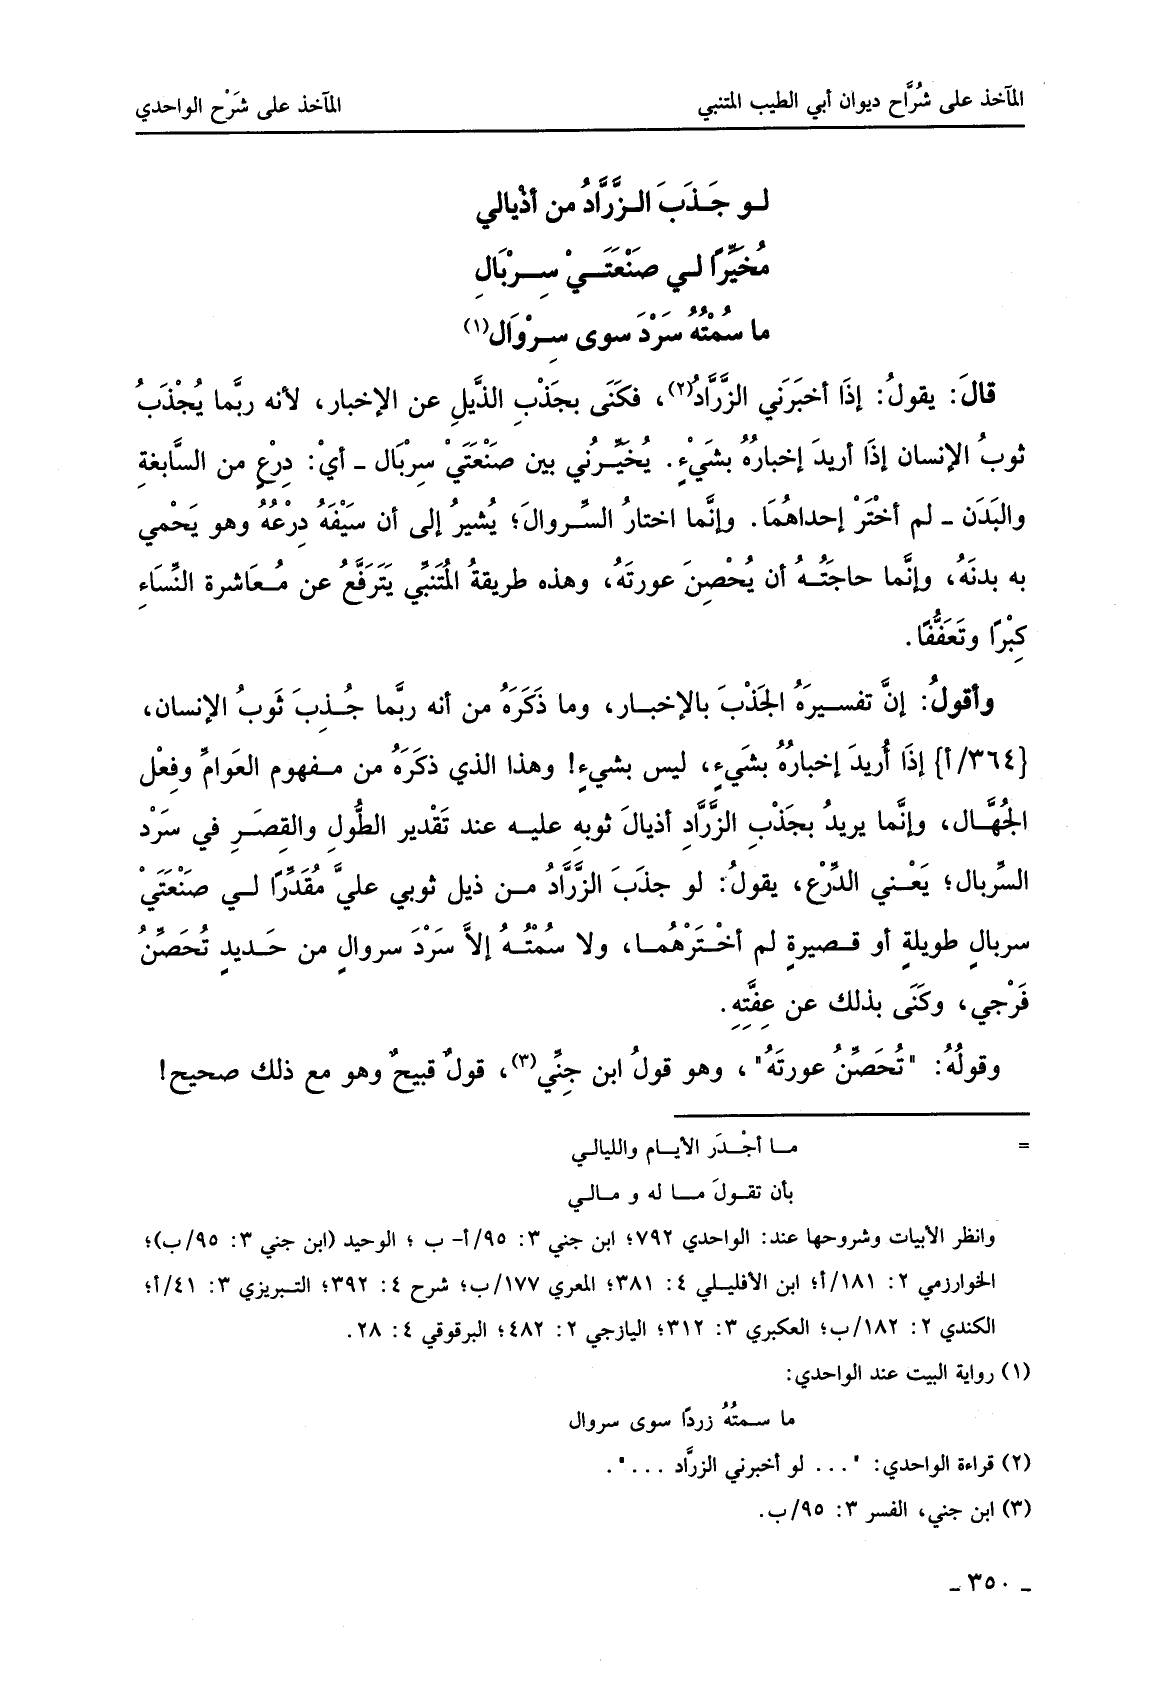 المآخذ على شُرَّاح ديوان أبي الطيب المتنبي
المآخذ على شَرْح الواحدي
لو جَذَبَ الزَّرَّادُ من أذْيالي
مُخَيِّرًا لي صَنْعَتَيْ سِرْبَالِ
ما سُمْتُهُ سَرْدَ سوى سِرْوَال(١)
قالَ: يقولُ: إذَا أخبَرَني الزَّرَّادُ(٢)، فكَنَى بجَذْبِ الذَّيلِ عن الإخبار، لأنه ربَّما يُجْذَبُ
ثوبُ الإنسان إذَا أريدَ إخبارُهُ بشَيْءٍ. يُخَيِّرُني بين صَنْعَتَيْ سِرْبَال ـ أيْ: دِرْعٍ من السَّابغةِ
والبَدَن ـ لم أخْتَرْ إحداهُمَا. وإنَّما اختارُ السِّروالَ؛ يُشيرُ إلى أن سَيْفَهُ دِرْعُهُ وهو يَحْمي
به بدنَهُ، وإنَّما حاجَتُهُ أن يُحْصِنَ عورتَهُ، وهذه طريقةُ المُتَنبِّي يَتَرَفَّعُ عن مُعَاشرة النِّسَاءِ
كِبْرًا وتَعَفُّفًا.
وأقولُ: إنَّ تفسيرَهُ الجَذْبَ بالإخبار، وما ذَكَرَهُ من أنه ربَّما جُذِبَ ثَوبُ الإنسان،
{٣٦٤/أ} إذَا أُريدَ إخبارُهُ بشَيءٍ، ليس بشيءٍ! وهذا الذي ذكَرَهُ من مفهوم العَوامِّ وفعْلِ
الجُهَّال، وإنَّما يريدُ بجَذْبِ الزَّرَّادِ أذيالَ ثوبِهِ عليه عند تَقْدير الطُّولِ والقِصَرِ في سَرْد
السِّربال؛ يَعْني الدِّرْع، يقولُ: لو جذَبَ الزَّرَّادُ من ذيل ثوبي عليَّ مُقَدِّرًا لي صَنْعَتَيْ
سربالٍ طويلةٍ أو قصيرةٍ لم أخْتَرْهُما، ولا سُمْتُهُ إلاَّ سَرْدَ سروال من حَديدٍ تُحَصِّنُ
فَرْجي، وكَنَى بذلك عن عِفَّتِهِ.
وقولُهُ: "تُحَصِّنُ عورتَهُ"، وهو قولُ ابن جِنِّي(٣)، قولٌ قبيحٌ وهو مع ذلك صحيح!
= ما أجْدَرَ الأيام والليالي
بأن تقولَ ما له و مالي
وانظر الأبيات وشروحها عند: الواحدي ٧٩٢؛ ابن جني ٣: ٩٥/أ- ب ؛ الوحيد (ابن جني ٣: ٩٥/ب)؛
الخوارزمي ٢: ١٨١/أ؛ ابن الأفليلي ٤: ٣٨١؛ المعري ١٧٧/ب؛ شرح ٤: ٣٩٢؛ التبريزي ٣: ٤١/أ؛
الكندي ٢: ١٨٢/ب؛ العكبري ٣: ٣١٢؛ اليازجي ٢: ٤٨٢؛ البرقوقي ٤: ٢٨.
(١) رواية البيت عند الواحدي:
ما سمتُهُ زردًا سوى سروال
(٢) قراءة الواحدي: "... لو أخبرني الزرَّاد ...".
(٣) ابن جني، الفسر ٣: ٩٥/ب.
ـ ٣٥٠ ـ